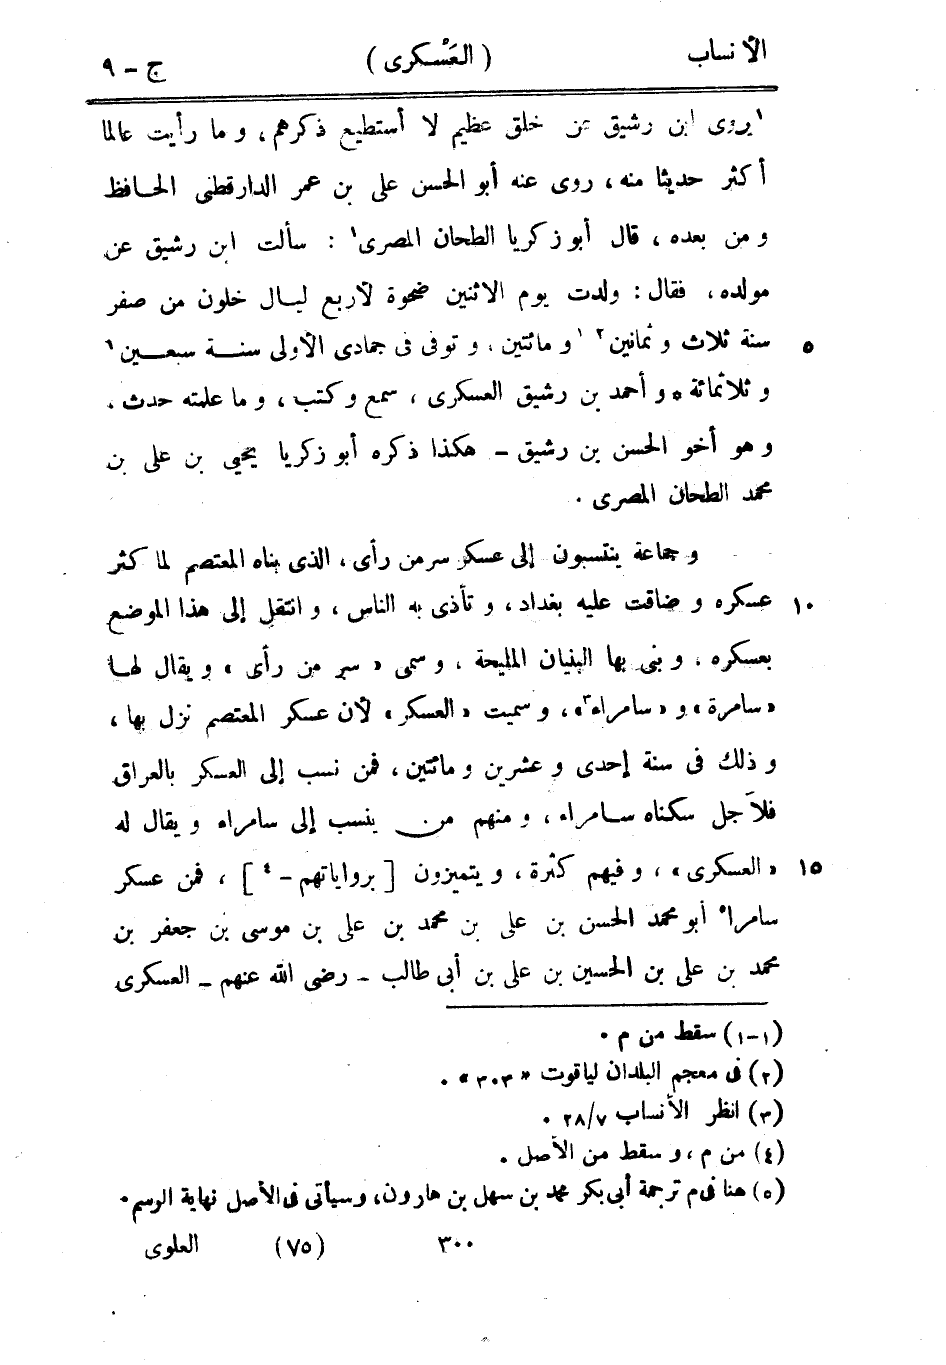 الأنساب (العَسْكرى) ج - ٩
١يروى ابن رشيق عن خلق عظيم لا أستطيع ذكرهم، و ما رأيت عالما
أكثر حديثا منه، روى عنه أبو الحسن على بن عمر الدارقطنى الحافظ
و من بعده، قال أبو زكريا الطحان المصرى١ : سألت ابن رشيق عن
مولده، فقال: ولدت يوم الاثنين ضحوة لأربع ليال خلون من صفر
سنة ثلاث و ثمانين٢ ١و مائتين، و توفى فى جمادى الأولى سنة سبعين١ ٥
و ثلاثمائة * و أحمد بن رشيق العسكرى، سمع و كتب، و ما علمته حدث،
و هو أخو الحسن بن رشيق - هكذا ذكره أبو زكريا يحيى بن على بن
محمد الطحان المصرى .
و جماعة ينتسبون إلى عسكر سر من رأى، الذى بناه المعتصم لما كثر
عسكره و ضاقت عليه بغداد، و تأذى به الناس، و انتقل إلى هذا الموضع ١٠
بعسكره، و بنى بها البنيان المليحة، و سمى « سر من رأى » و يقال لها
« سامرة » و « سامراء٣»، و سميت « العسكر » لأن عسكر المعتصم نزل بها،
و ذلك فى سنة إحدى و عشرين و مائتين، فمن نسب إلى العسكر بالعراق
فلأجل سكناه سامراء، و منهم من ينسب إلى سامراء و يقال له
« العسكرى »، و فيهم كثرة، و يتميزون [ برواياتهم -٤ ]، فمن عسكر ١٥
سامرا٥ أبو محمد الحسن بن على بن محمد بن على بن موسى بن جعفر بن
محمد بن على بن الحسين بن على بن أبى طالب - رضى الله عنهم - العسكرى
(١-١) سقط من م .
(٢) فى معجم البلدان لياقوت « ٣٠٣ » .
(٣) انظر الأنساب ٢٨/٧ .
(٤) من م، و سقط من الأصل .
(٥) هنا فى م ترجمة أبى بكر محمد بن سهل بن هارون، و سيأتى فى الأصل نهاية الرسم .
٣٠٠ (٧٥) العلوى